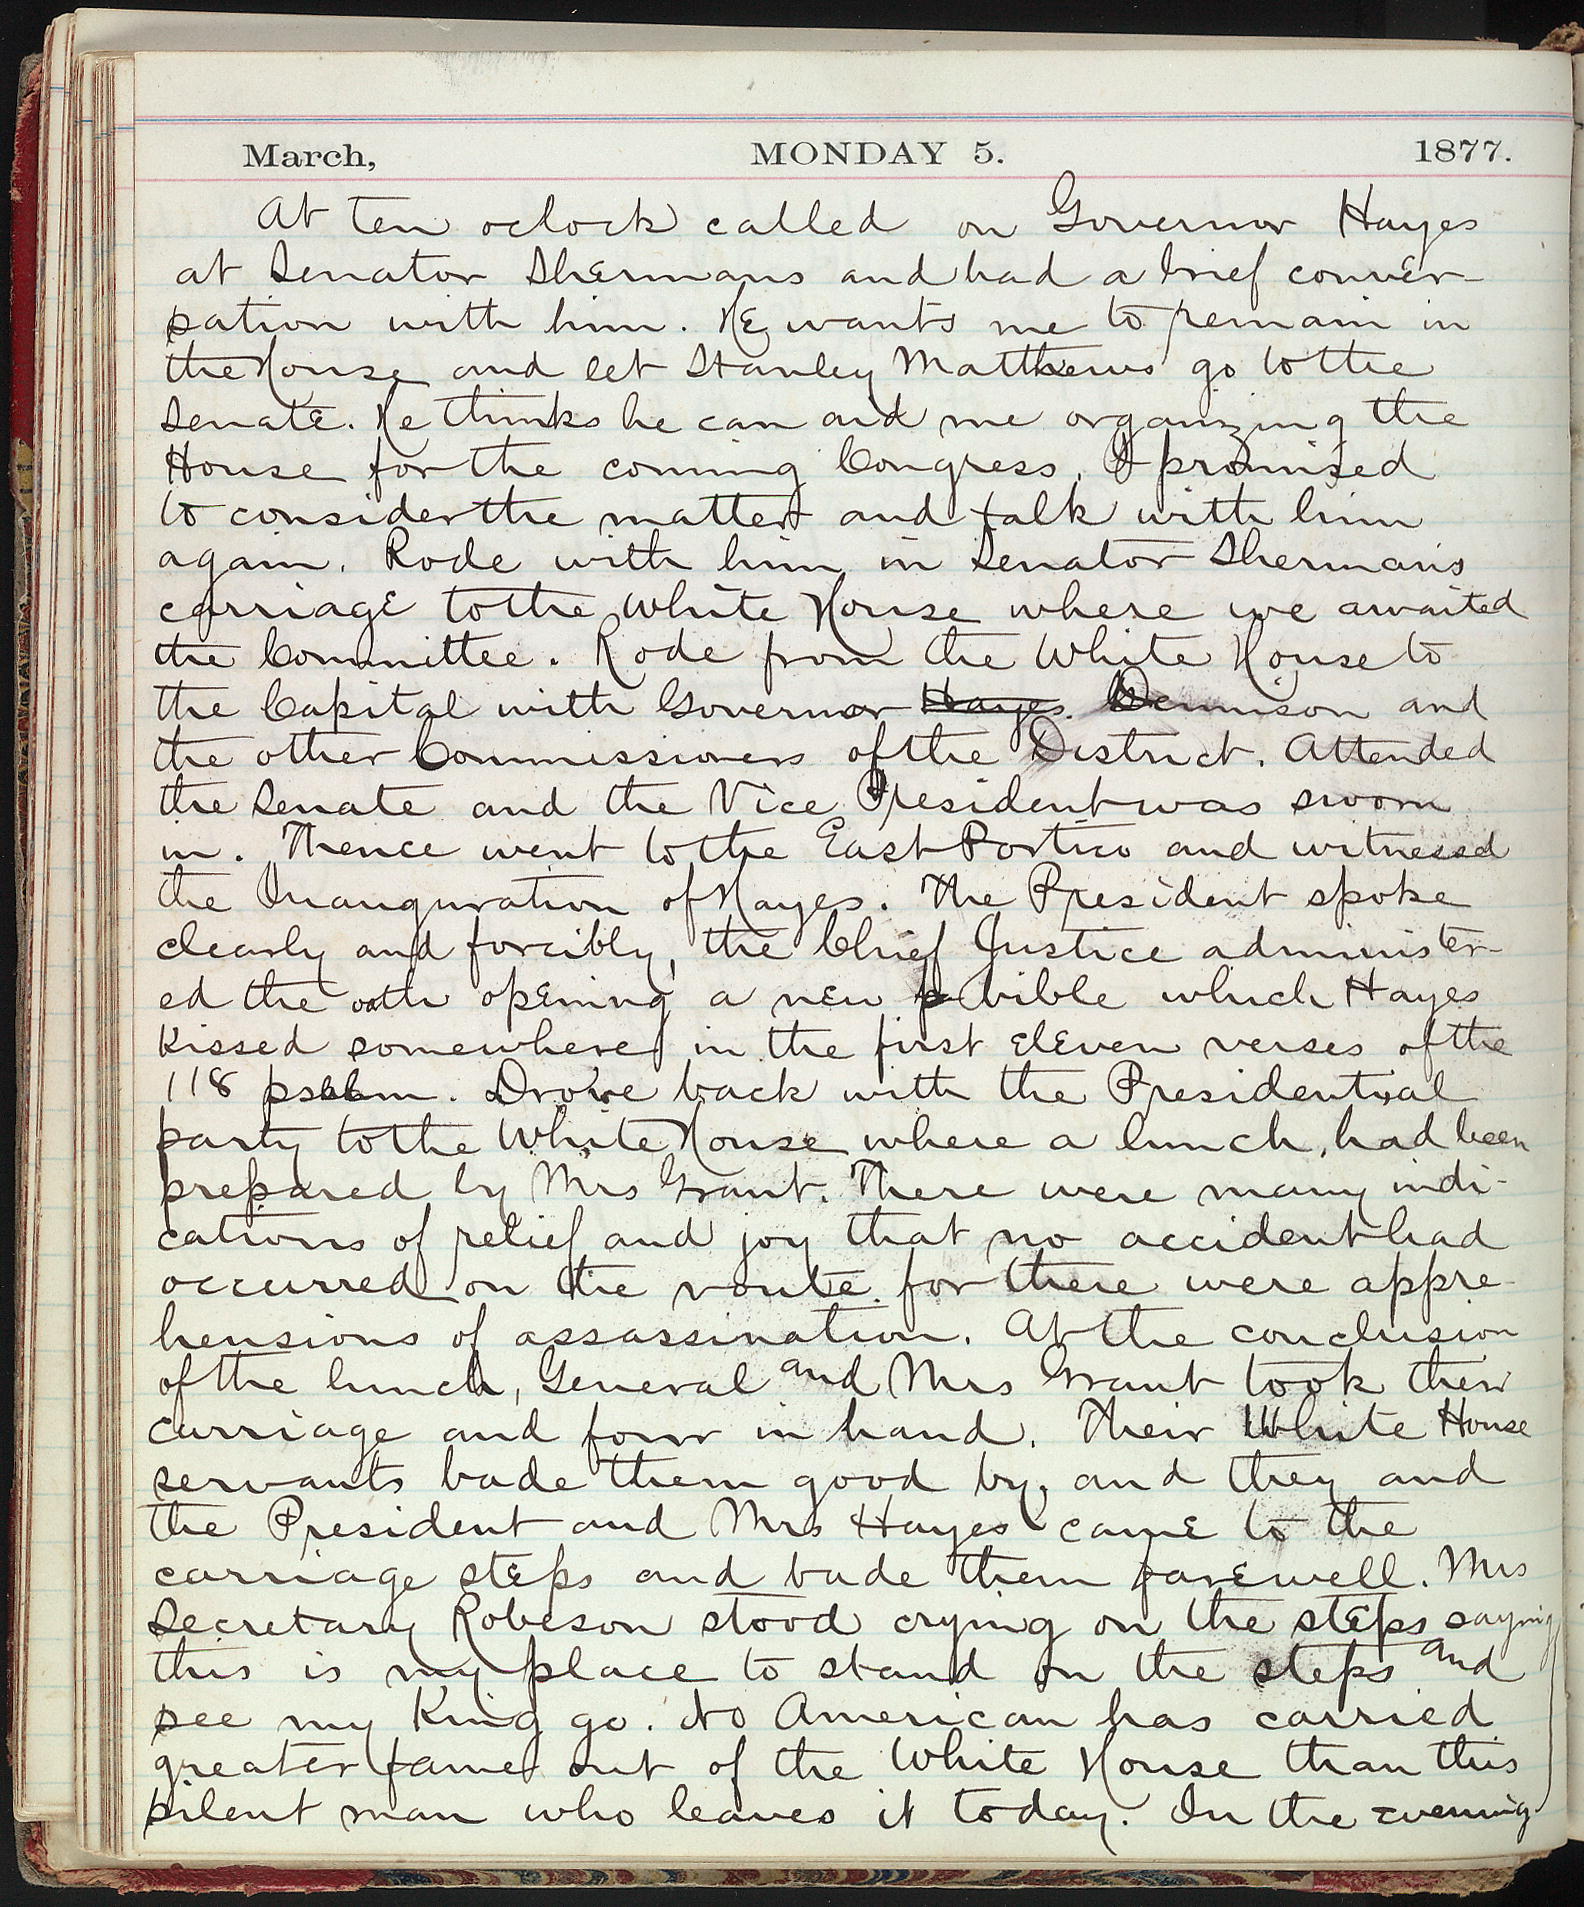 March, MONDAY 5. 1877.
At ten oclock called on Governor Hayes
at Senator Shermans and had a brief conver-
sation with him. He wants me to remain in
the House and let Stanley Matthews go to the
Senate. He thinks he can aid me organizing the
House for the coming Congress. I promised
to consider the matter and talk with him
again. Rode with him in Senator Sherman's
carriage to the White House where we awaited
the Committee. Rode from the White House to
the Capital with Governor Hayes. Dennison and
the other Commissioners of the District. Attended
the Senate and the Vice President was sworn
in. Thence went to the East Portico and witnessed
the Inauguration of Hayes. The President spoke
clearly and forcibly, the Chief Justice administer-
ed the oath opening a new bible which Hayes
kissed somewhere in the first eleven verses of the
118 psalm. Drove back with the Presidential
party to the White House where a lunch, had been
prepared by Mrs Grant. There were many indi-
cations of relief and joy that no accident had
occurred on the route for there were appre-
hensions of assassination. At the conclusion
of the lunch, General and Mrs Grant took their
carriage and four in hand. Their White House
servants bade them good by, and they and
the President and Mrs Hayes came to the
carriage steps and bade them farewell. Mrs
Secretary Robeson stood crying on the steps saying
this is my place to stand on the steps and
see my King go. No American has carried
greater fame out of the White House than this
silent man who leaves it today. In the evening